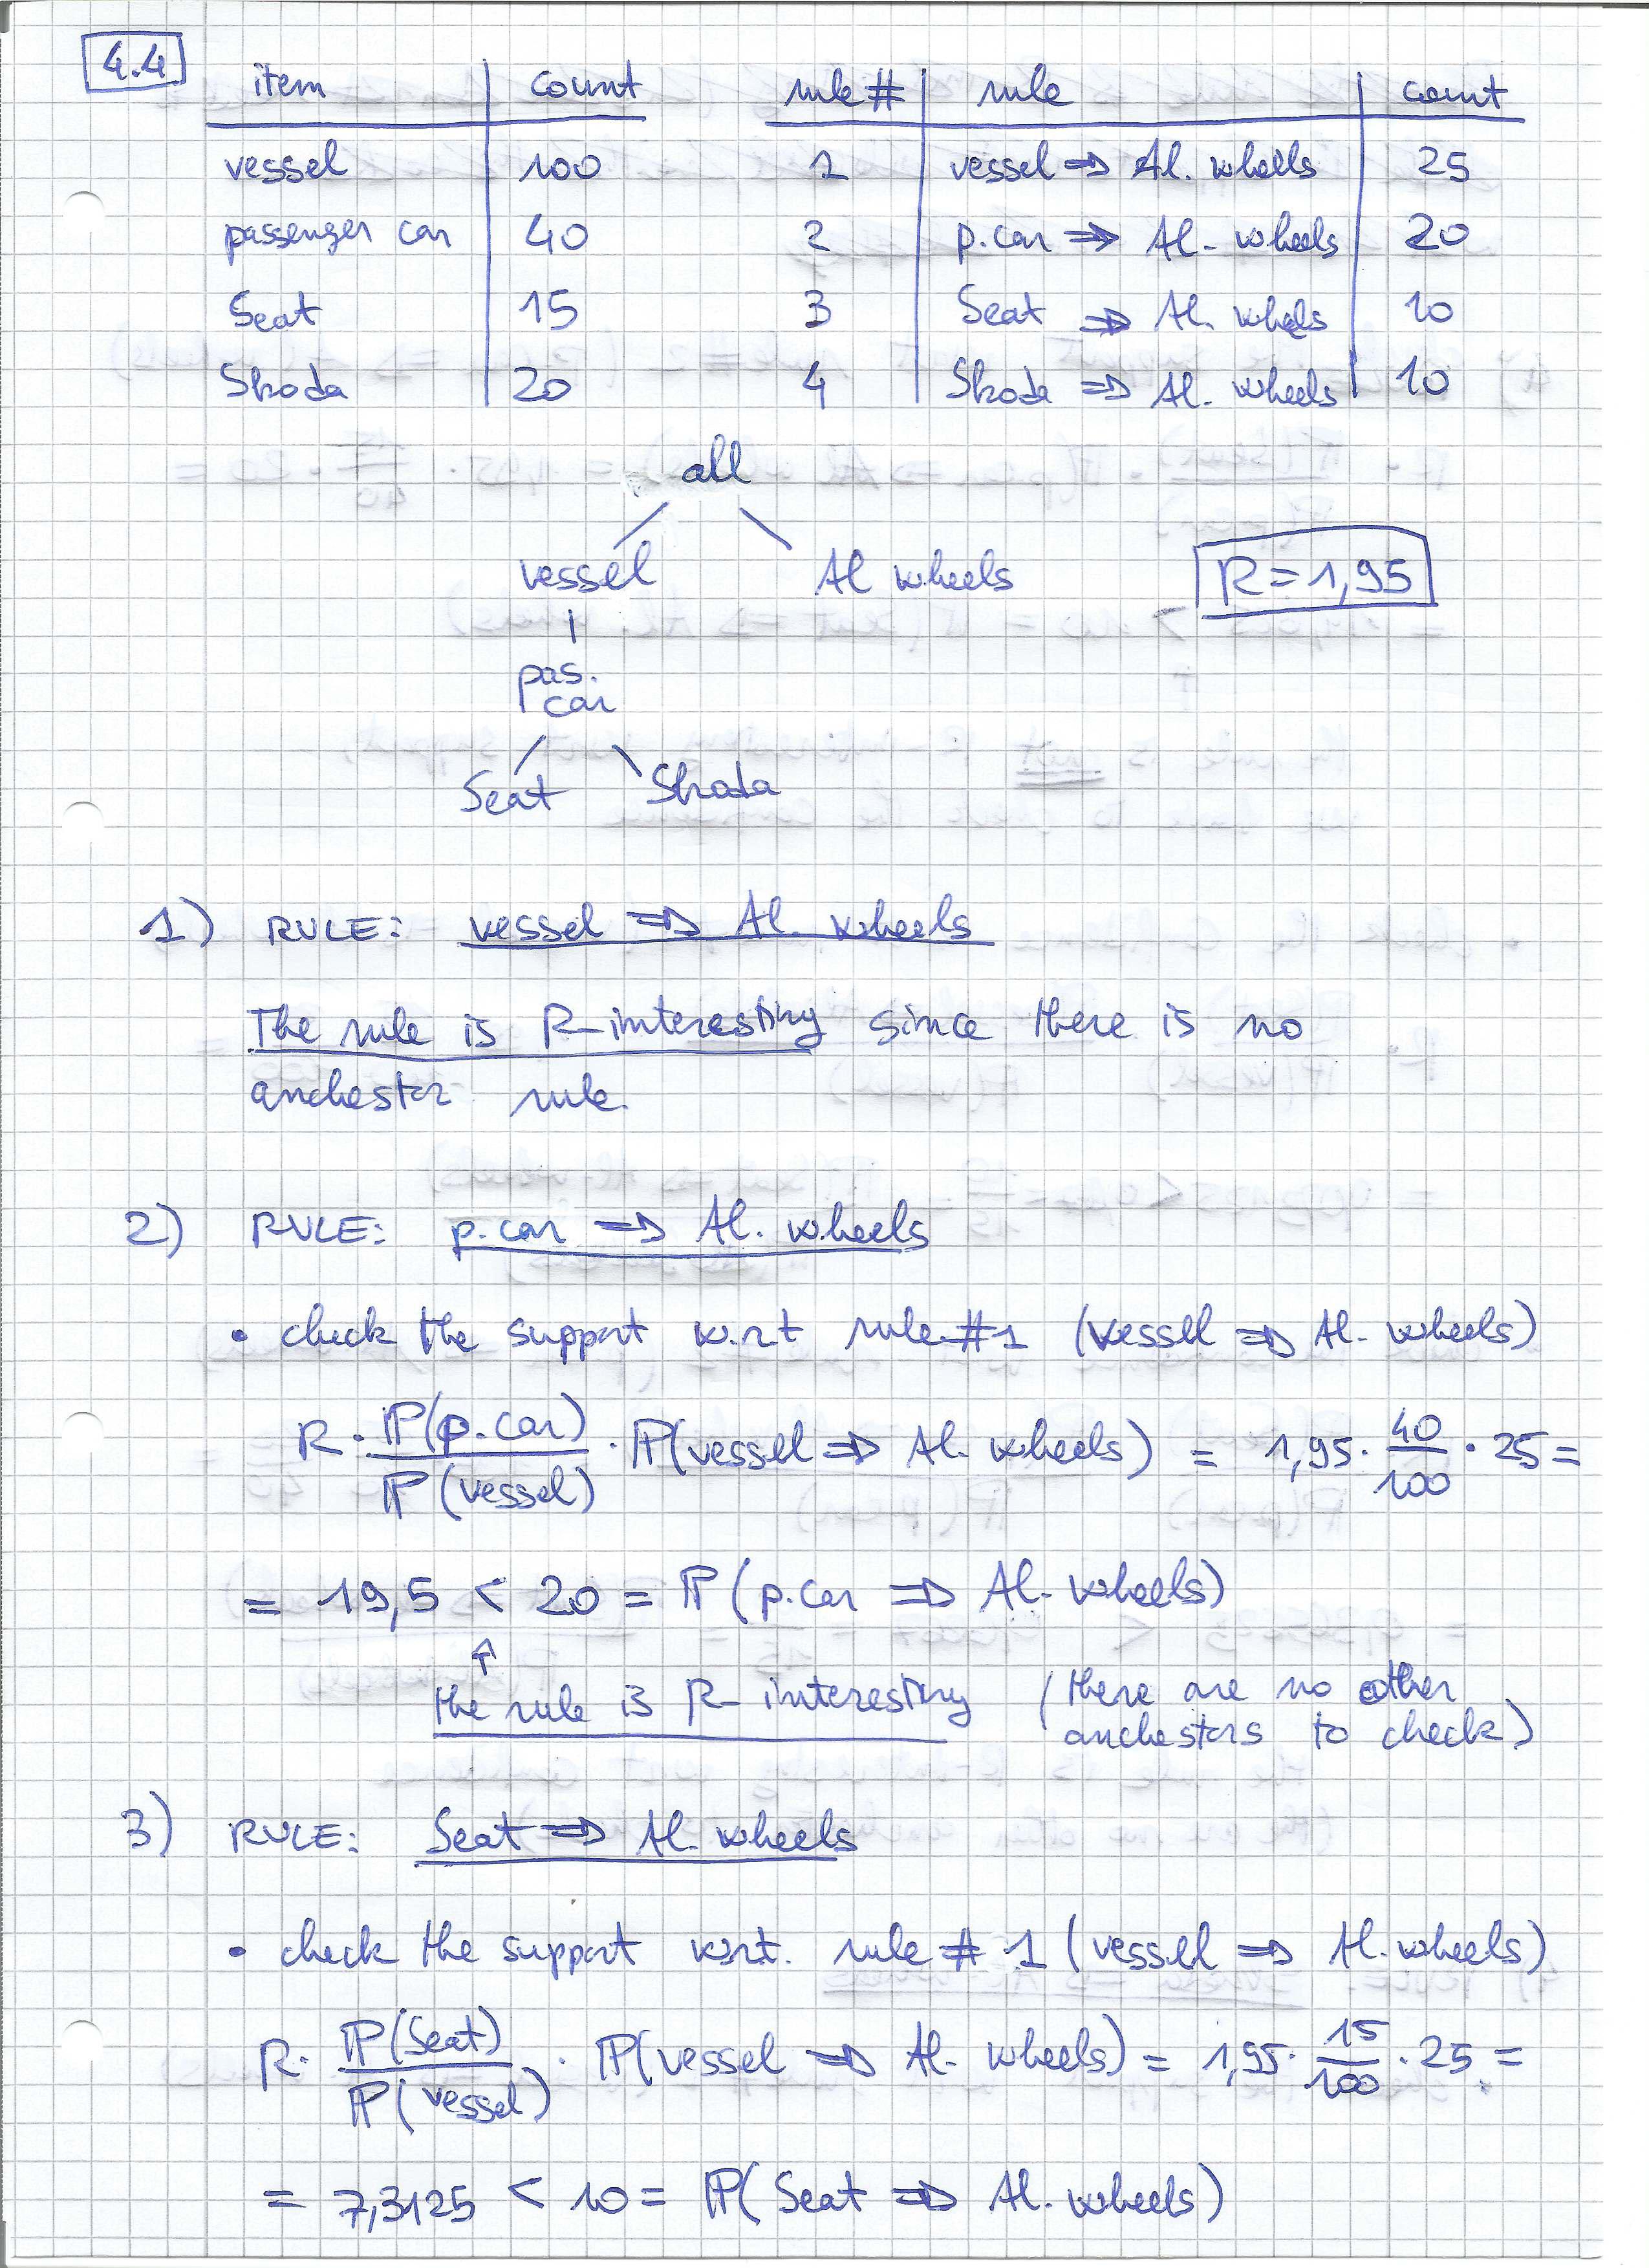 4.4
item | count rule # | rule | count
vessel | 100 1 | vessel ⇒ Al. wheels | 25
passenger car | 40 2 | p.car ⇒ Al. wheels | 20
Seat | 15 3 | Seat ⇒ Al. wheels | 10
Skoda | 20 4 | Skoda ⇒ Al. wheels | 10
all
vessel Al wheels R = 1,95
pas.
car
Seat Skoda
1) RULE: vessel ⇒ Al. wheels
The rule is R-interesting since there is no
anchestor rule.
2) RULE: p.car ⇒ Al. wheels
• check the support w.r.t rule #1 (vessel ⇒ Al. wheels)
R · ℙ(p.car)/ℙ(vessel) · ℙ(vessel ⇒ Al. wheels) = 1,95 · 40/100 · 25 =
= 19,5 < 20 = ℙ(p.car ⇒ Al. wheels)
↑
the rule is R-interesting (there are no other
anchestors to check)
3) RULE: Seat ⇒ Al. wheels
• check the support w.r.t. rule # 1 (vessel ⇒ Al. wheels)
R · ℙ(Seat)/ℙ(vessel) · ℙ(vessel ⇒ Al. wheels) = 1,95 · 15/100 · 25 =
= 7,3125 < 10 = ℙ(Seat ⇒ Al. wheels)